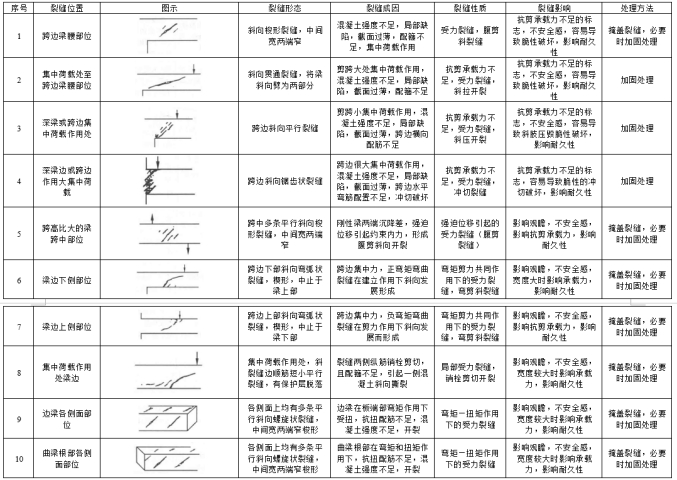 序号 裂缝位置 图示 裂缝形态 裂缝成因 裂缝性质 裂缝影响 处理方法
1 跨边梁腰部位 斜向梭形裂缝，中间宽两端窄 混凝土强度不足，局部缺陷，截面过薄，配箍不足，集中荷载作用 受力裂缝，腹剪斜裂缝 抗剪承载力不足的标志，不安全感，容易导致脆性破坏，影响耐久性 掩盖裂缝，必要时加固处理
2 集中荷载处至跨边梁腰部位 斜向贯通裂缝，将梁斜向劈为两部分 剪跨大处集中荷载作用，混凝土强度不足，局部缺陷，截面过薄，配箍不足 抗剪承载力不足，受力裂缝，斜拉开裂 抗剪承载力不足的标志，不安全感，容易导致脆性破坏，影响耐久性 加固处理
3 深梁或跨边集中荷载作用处 跨边斜向平行裂缝 剪跨小集中荷载作用，混凝土强度不足，局部缺陷，截面过薄，跨边横向配筋不足 抗剪承载力不足，受力裂缝，斜压开裂 抗剪承载力不足的标志，不安全感，容易导致斜被压毁脆性破坏，影响耐久性 加固处理
4 深梁边或跨边作用大集中荷载 跨边斜向锯齿状裂缝 跨边很大集中荷载作用，混凝土强度不足，局部缺陷，截面过薄，跨边水平弯筋配置不足，冲切破坏 抗剪承载力不足，受力裂缝，冲切裂缝 抗剪承载力不足的标志，容易导致脆性的冲切破坏，影响耐久性 加固处理
5 跨高比大的梁跨中部位 跨中多条平行斜向梭形裂缝，中间宽两端窄 刚性梁两端沉降差，强迫位移引起约束内力，形成腹剪斜向开裂 强迫位移引起的受力裂缝（腹剪裂缝） 影响观瞻，不安全感，影响抗剪承载力，影响耐久性 掩盖裂缝，必要时加固处理
6 梁边下侧部位 跨边下部斜向弯弧状裂缝，楔形，中止于梁上部 跨边集中力，正弯矩弯曲裂缝在建立作用下斜向发展形成 弯矩剪力共同作用下的受力裂缝，弯剪斜裂缝 影响观瞻，不安全感，宽度大时影响承载力，影响耐久性 掩盖裂缝，必要时加固处理
7 梁边上侧部位 跨边上部斜向弯弧状裂缝，楔形，中止于梁下部 跨边集中力，负弯矩弯曲裂缝在剪力作用下斜向发展而形成 弯矩剪力共同作用下的受力裂缝，弯剪斜裂缝 影响观瞻，不安全感，影响抗剪承载力，影响耐久性 掩盖裂缝，必要时加固处理
8 集中荷载作用处梁边 集中荷载作用处，斜裂缝边顺筋短小平行裂缝，有保护层脱落 裂缝两侧纵筋销栓剪切，且配箍不足，引起一侧混凝土斜向撕裂 局部受力裂缝，销栓剪切开裂 影响观瞻，不安全感，宽度较大时影响承载力，影响耐久性 掩盖裂缝，必要时加固处理
9 边梁各侧面部位 各侧面上均有多条平行斜向螺旋状裂缝，中间宽两端窄梭形 边梁在板端部弯矩作用下受扭，抗扭配筋不足，混凝土强度不足，开裂 弯矩—扭矩作用下的受力裂缝 影响观瞻，不安全感，宽度较大时影响承载力，影响耐久性 掩盖裂缝，必要时加固处理
10 曲梁根部各侧面部位 各侧面上均有多条平行斜向螺旋状裂缝，中间宽两端窄梭形 曲梁根部在弯矩和扭矩作用下，抗扭配筋不足，混凝土强度不足，开裂 弯矩—扭矩作用下的受力裂缝 影响观瞻，不安全感，宽度较大时影响承载力，影响耐久性 掩盖裂缝，必要时加固处理